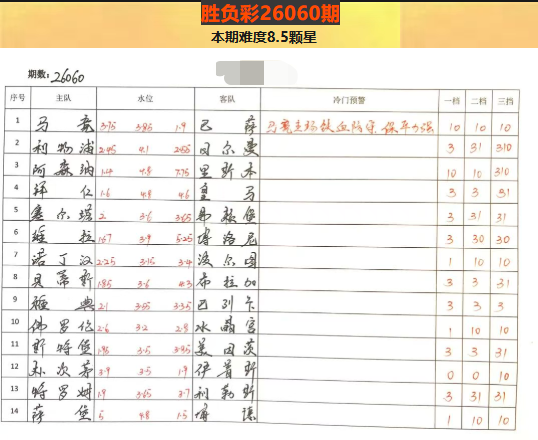 胜负彩26060期
本期难度8.5颗星
期数: 26060
序号 主队 水位 客队 冷门预警 一档 二档 三档
1 马竞 3.75 3.85 1.9 巴萨 马竞主场 保平 10 10 10
2 利物浦 2.45 4.1 2.55 日尔曼 3 31 310
3 阿森纳 1.4 4.8 7.75 里斯本 10 10 310
4 拜仁 1.6 4.8 4.6 皇马 3 3 31
5 塞尔塔 2 3.6 3.65 弗赖堡 3 31 31
6 维拉 1.57 3.9 5.25 博洛尼 3 30 30
7 诺丁汉 2.25 3.15 3.4 波尔图 1 10 10
8 贝蒂斯 1.85 3.6 4.3 布拉加 3 3 31
9 2.1 3.05 3.35 巴列卡 3 3 3
10 佛罗伦 2.6 3.2 2.8 水晶宫 1 10 10
11 斯特堡 1.95 3.5 3.85 美因茨 3 3 31
12 朴次茅 3.9 3.5 1.9 伊普斯 0 0 10
13 特罗姆 1.9 3.65 3.7 利勒斯 3 31 31
14 萨堡 5 4.8 1.5 博德 1 10 10